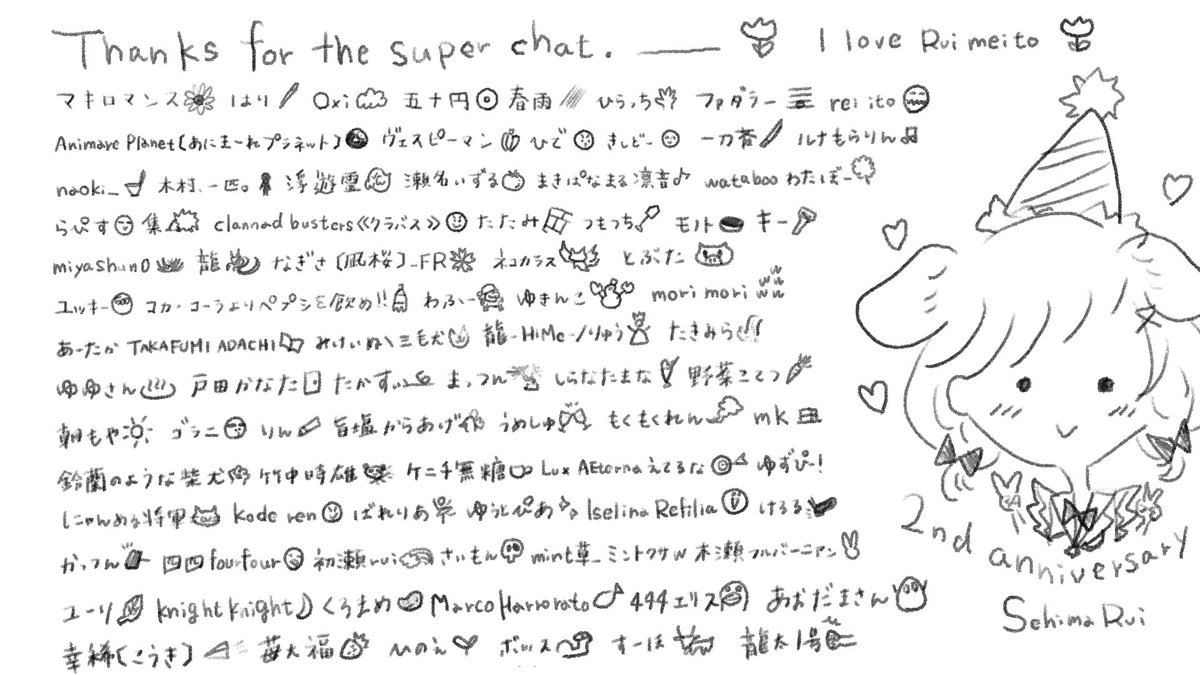 Thanks for the super chat. I love Rui meito
マキロマンス はり Oxi 五十円 春雨 ひらっち ファダラー rei ito
Animare Planet(あにまーれプラネット) ヴェスピーマン ひで きしどー 一刀斎 ルナもらりん
naoki_ 木村、一匹。 浮遊霊 瀬名いずる まきぱなまる凛音♪ wataboo わたぼー
らぴす 集 clannad busters《クラバス》 たたみ つもっち モノト キー
miyashun0 龍 なぎさ〔凪桜〕_FR ネコカラス とぶた
ユッキー コカ・コーラよりペプシを飲め!! わふー ゆきんこ mori mori
あーたか TAKAFUMI ADACHI みけいぬ\三毛犬 龍-HiMe-/りゅう たきみら
ゆゆさん 戸田かなた たかすぃ まっつん しらなたまな 野菜こてつ
朝もや ゴラニ りん 旨塩からあげ うめしゅ もくもくれん mk
鈴蘭のような柴犬 竹中時雄 ケニチ無糖 Lux AEterna えてるな ゆずぴー!
にゃんめる将軍 Kode ren ばれりあ ゆうとぴあ Iselina Refilia けろる
かっつん 四四fourfour 初瀬rui さいもん mint草_ミントクサ 木瀬フルバーニアン
ユーリ knight knight くろまめ Marco Harrorato 444エリス あおだまさん
幸稀〔こうき〕 苺大福 ひのえ ボッスン すーほ 龍太1号
2nd anniversary
Sehima Rui